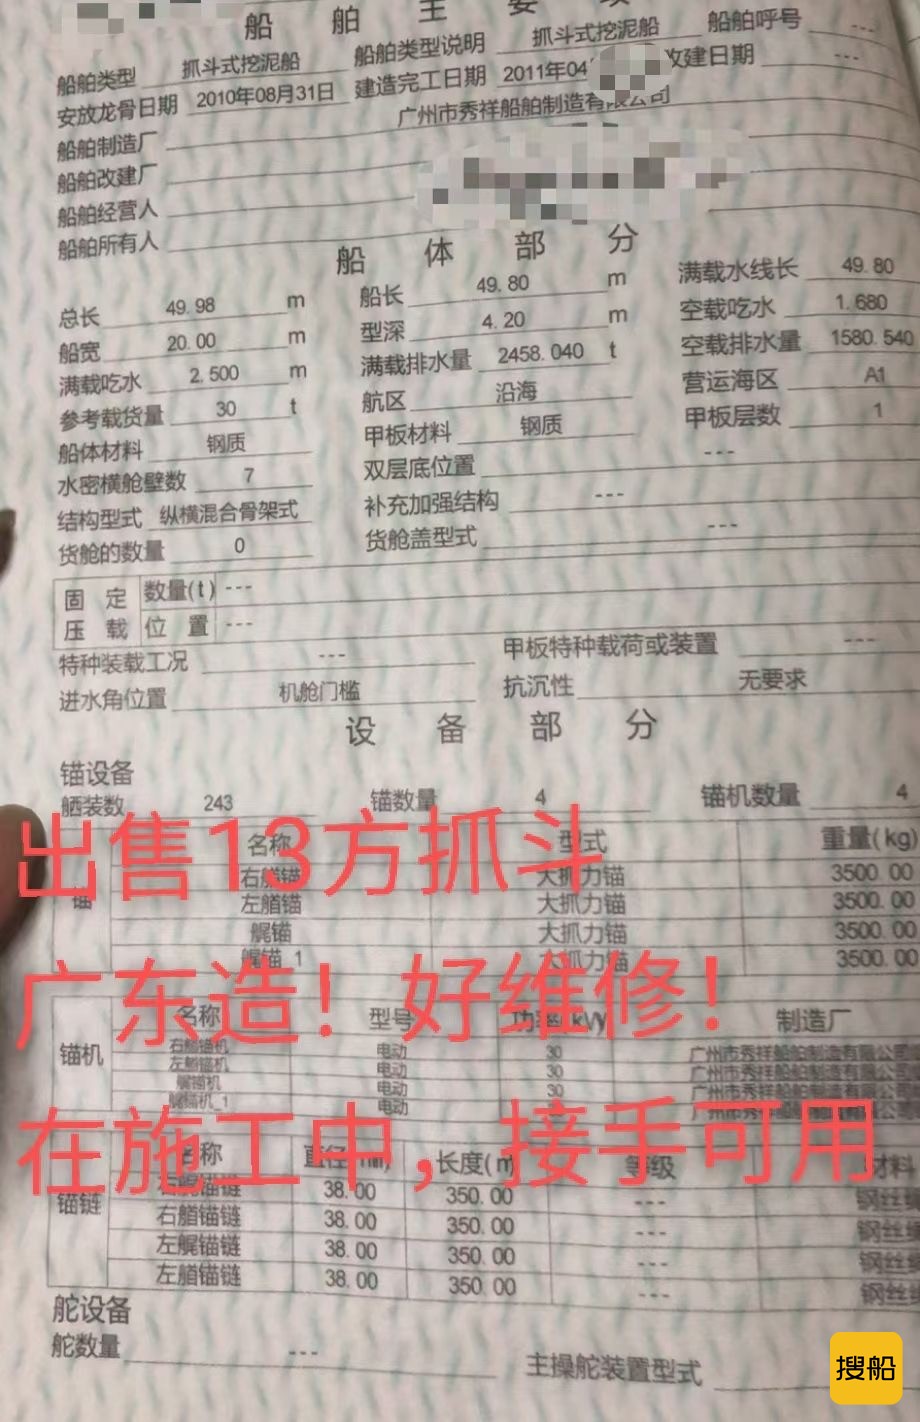 船舶主要
船舶类型 抓斗式挖泥船 船舶类型说明 抓斗式挖泥船 船舶呼号 ---
安放龙骨日期 2010年08月31日 建造完工日期 2011年04 改建日期 ---
船舶制造厂 广州市秀祥船舶制造有限公司
船舶改建厂
船舶经营人
船舶所有人
船体部分
总长 49.98 m 船长 49.80 m 满载水线长 49.80
船宽 20.00 m 型深 4.20 m 空载吃水 1.680
满载吃水 2.500 m 满载排水量 2458.040 t 空载排水量 1580.540
参考载货量 30 t 航区 沿海 营运海区 A1
船体材料 钢质 甲板材料 钢质 甲板层数 1
水密横舱壁数 7 双层底位置 ---
结构型式 纵横混合骨架式 补充加强结构 ---
货舱的数量 0 货舱盖型式 ---
固定压载 数量(t) ---
位置 ---
特种装载工况 --- 甲板特种载荷或装置 ---
进水角位置 机舱门槛 抗沉性 无要求
设备部分
锚设备
舾装数 243 锚数量 4 锚机数量 4
出售13方抓斗
锚 名称 型式 重量(kg)
右艏锚 大抓力锚 3500.00
左艏锚 大抓力锚 3500.00
艉锚 大抓力锚 3500.00
艉锚_1 大抓力锚 3500.00
广东造！好维修！
锚机 名称 型号 功率(kW) 制造厂
右艏锚机 电动 30 广州市秀祥船舶制造有限公司
左艏锚机 电动 30 广州市秀祥船舶制造有限公司
艉锚机 电动 30 广州市秀祥船舶制造有限公司
艉锚机_1 电动 广州市秀祥船舶制造有限公司
在施工中，接手可用
锚链 名称 直径(mm) 长度(m) 等级 材料
右艉锚链 38.00 350.00 --- 钢丝
右艏锚链 38.00 350.00 --- 钢丝
左艉锚链 38.00 350.00 --- 钢丝
左艏锚链 38.00 350.00 --- 钢丝
舵设备
舵数量 --- 主操舵装置型式
搜船